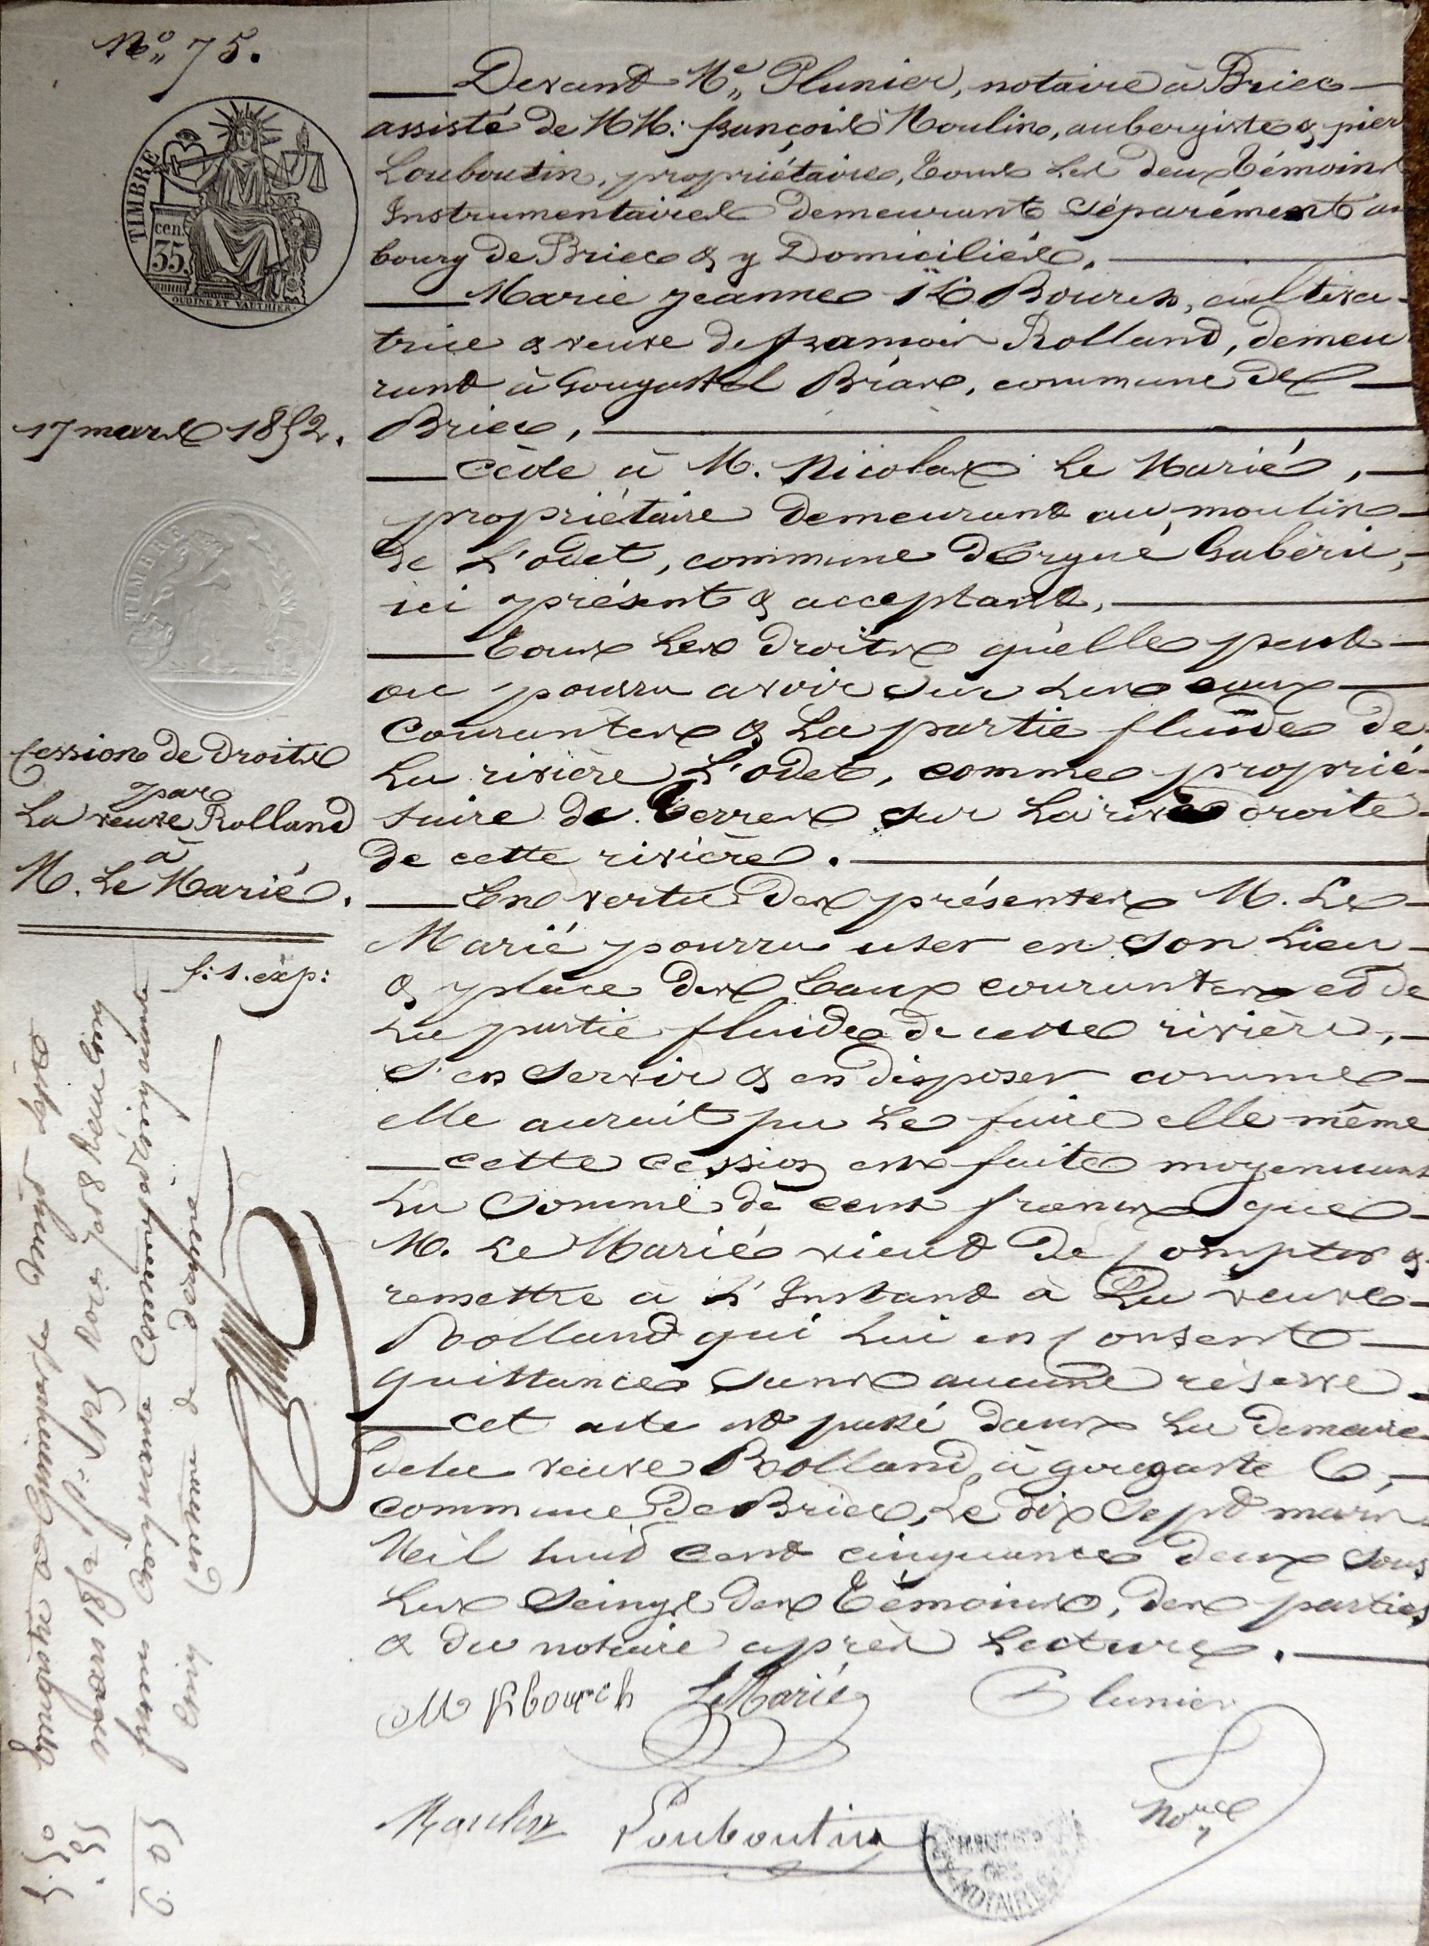 No. 75.
TIMBRE
cen.
35.
OUDINÉ ET VAUTHIER
17 mars 1852.
TIMBRE
Cession de droits
par
La veuve Rolland
à
M. Le Marié.
f: 1. exp:
Devant Me Plunier, notaire à Briec
assisté de MM: françois Moulin, aubergiste & pier
Louboutin, propriétaire, tous les deux témoins
Instrumentaires demeurant séparément au
bourg de Briec & y Domiciliés.
Marie jeanne Le Bourch, cultiva-
trice & veuve de françois Rolland, demeu
rant à Gougastel Braz, commune de
Briec,
cède à M. Nicolas Le Marié,
propriétaire demeurant au moulin
de L'odet, commune d'Ergué Gabéric,
ici présent & acceptant,
Tous les droits qu'elle peut
ou pourra avoir sur les eaux
courantes & La partie fluide de
La rivière L'odet, comme proprié-
taire de terres sur La rive droite
de cette rivière.
En vertu des présentes M. Le
Marié pourra user en son Lieu
& place des Eaux courantes et de
La partie fluide de cette rivière,
s'en servir & en disposer comme
elle aurait pu Le faire elle même
cette cession est faite moyennant
La somme de cent francs que
M. Le Marié vient de compter &
remettre à L'Instant à La veuve
Rolland qui Lui en consent
quittance sans aucune réserve.
cet acte est passé dans La demeure
de la veuve Rolland, à gougastel
commune de Briec, Le dix sept mars
Mil huit cent cinquante deux sous
Les seings des Témoins, des parties
& du notaire après Lecture.
M Lbourch LeMarié Plunier
Moulin Louboutin Noire
NOTAIRES